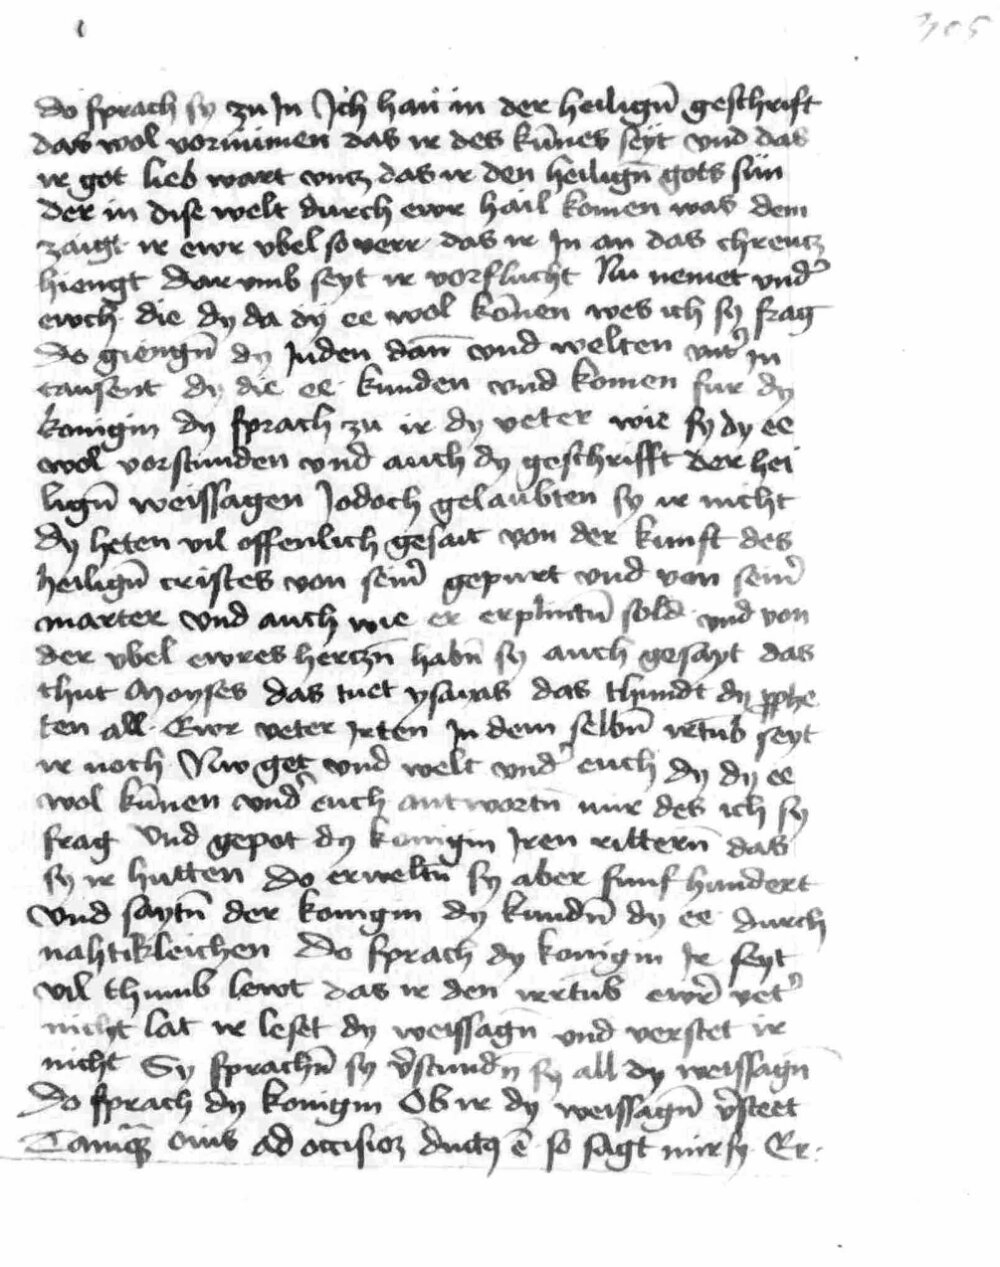 305
do sprach sy zu In Ich han in der heiligñ geschrift
das wol vornümen das ir des kűnes seyt vnd das
ir got lieb wart vncz das ir den heiligñ gots sün
der in dise welt durch ewr hail komen was dem
zaigt ir ewr vbel so verr das ir In an das chreucz
hiengt dar vmb seyt ir vorflucht Nu nemet vnd̓
ewch die dy da dy ee wol kőnen wes ich sy frag
Do giengñ dy Juden dañ vnd welten vnt̓ in
tausent dy die ee kunden vnd komen fur dy
konigin dy sprach zu ir dy veter wie sy dy ee
wol vorstunden vnd auch dy geschrifft der hei
ligñ weissagen Jodoch gelaubten sy ir nicht
dy heten vil offenlich gesait von der kunft des
heiligñ cristes von seim̄ gepurt vnd von sein̓
marter vnd auch wie er sold vnd von
der vbel ewres herczñ habñ sy auch gesayt das
thut Moyses das tuet ysayas das thundt dy p̱phe
ten all Ewr veter Irten In dem selbñ irtub seyt
ir noch Nw get vnd welt vnd̓ euch dy dy ee
wol kűnen vnd̓ euch antwortñ mir des ich sy
frag Vnd gepot dy konigin Iren ritterñ das
sy ir hutten Do erweltñ sy aber funf hundert
Vnd saytñ der konigin dy kundñ dy ee durch
nahtikleichen Do sprach dy konigin Ir seyt
vil thumb lewt das ir den irrtub ewr̄ vet̓
nicht lat ir leset dy weissagñ vnd verstet ir
nicht Sy sprachñ sy v̓stundñ sy all dy weissagñ
Do sprach dy konigin Ob ir dy weissagñ v̓steet
Tamq̄ȝ ouis ad occisioȝ ductꝯ ē so sagt mir sy Er